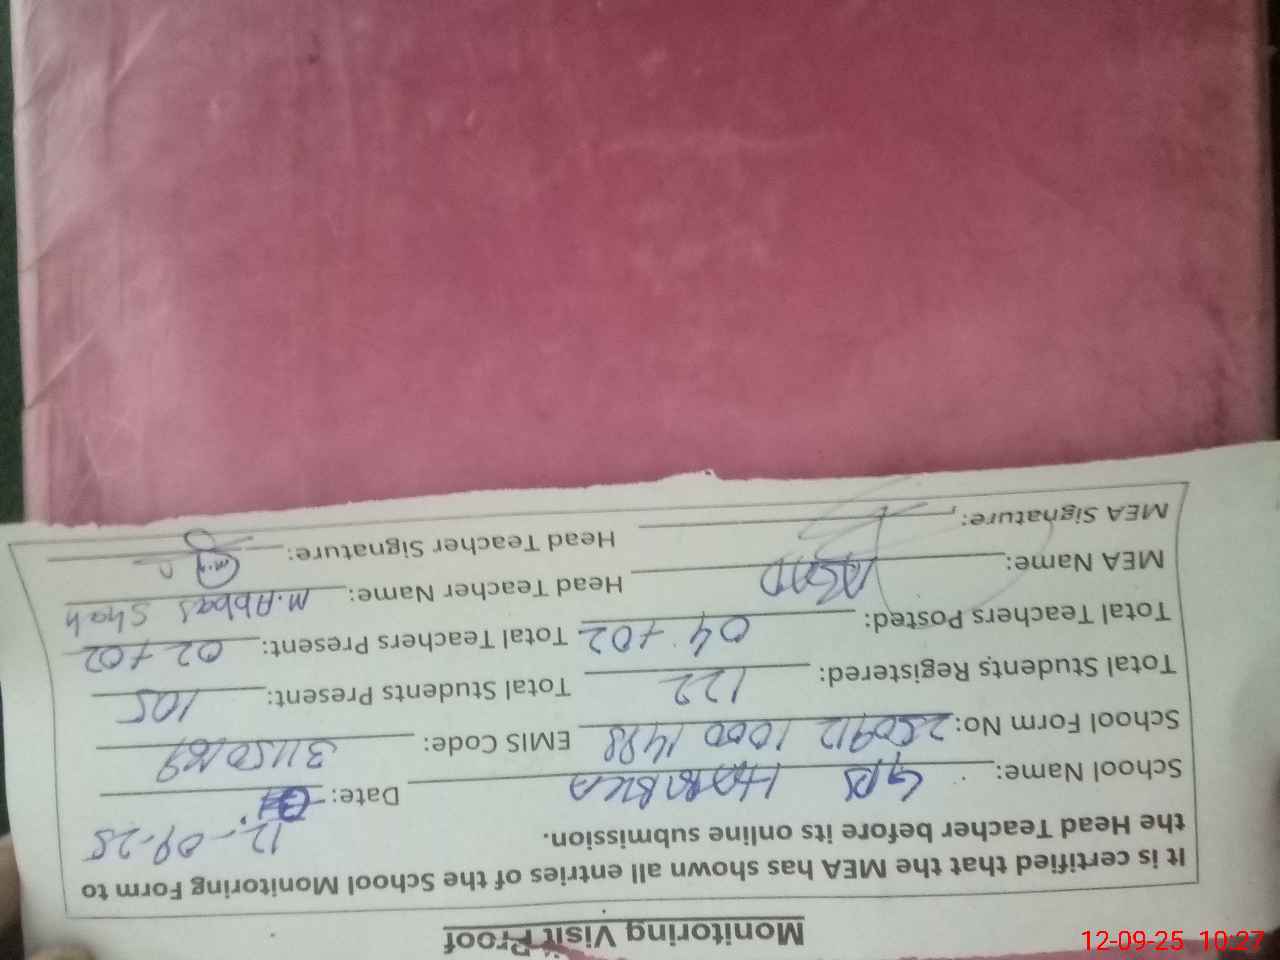 Monitoring Visit Proof
It is certified that the MEA has shown all entries of the School Monitoring Form to
the Head Teacher before its online submission.
12-09-25
School Name: GPS Date:
School Form No: 250912 1000 1498 EMIS Code:
Total Students Registered: 122 Total Students Present: 105
Total Teachers Posted: 04+02 Total Teachers Present: 02+02
MEA Name: ASAD Head Teacher Name: M.Abbas Shah
MEA Signature: Head Teacher Signature:
12-09-25 10:27